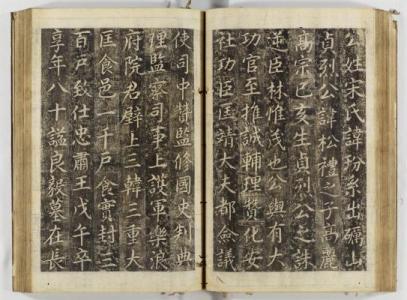 公姓宋氏諱玢系出礪山
貞烈公諱松禮之子高麗
高宗己亥生貞烈公之誅
逆臣林惟茂也公與有大
功官至推誠輔理贊化安
社功臣匡靖大夫都僉議
使司中贊監修國史判典
理監察司事上護軍樂浪
府院君壁上三韓三重大
匡食邑一千戶食實封三
百戶致仕忠肅王戊午卒
享年八十諡良毅墓在長